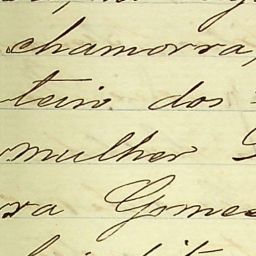 chamorra,
teiro dos
mulher
ra Gomes